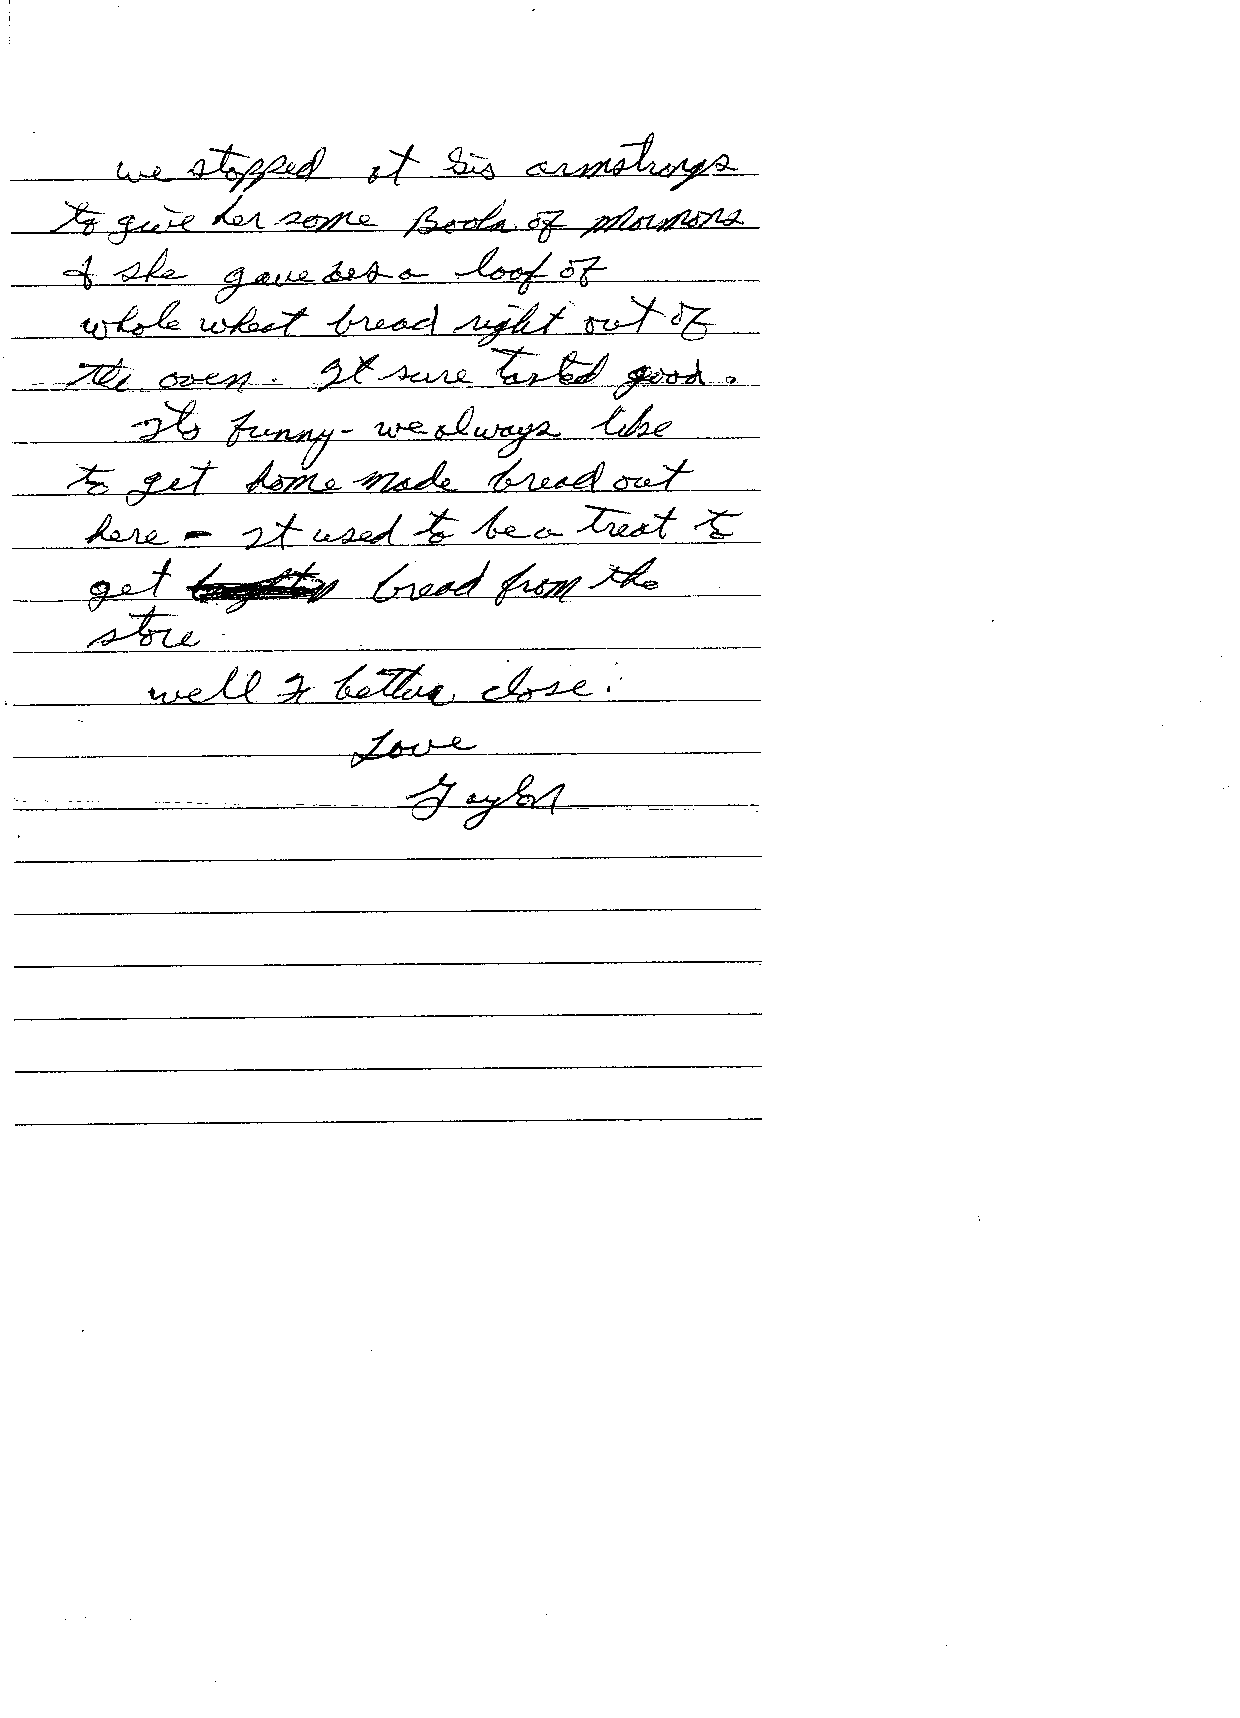 we stopped at Sis armstrongs
to give her some Book of Mormons
& she gave us a loaf of
whole wheat bread right out of
the oven. It sure tasted good.
Its funny - we always like
to get home made bread out
here - It used to be a treat to
get bread from the
store
well I better close.
Love
Taylor